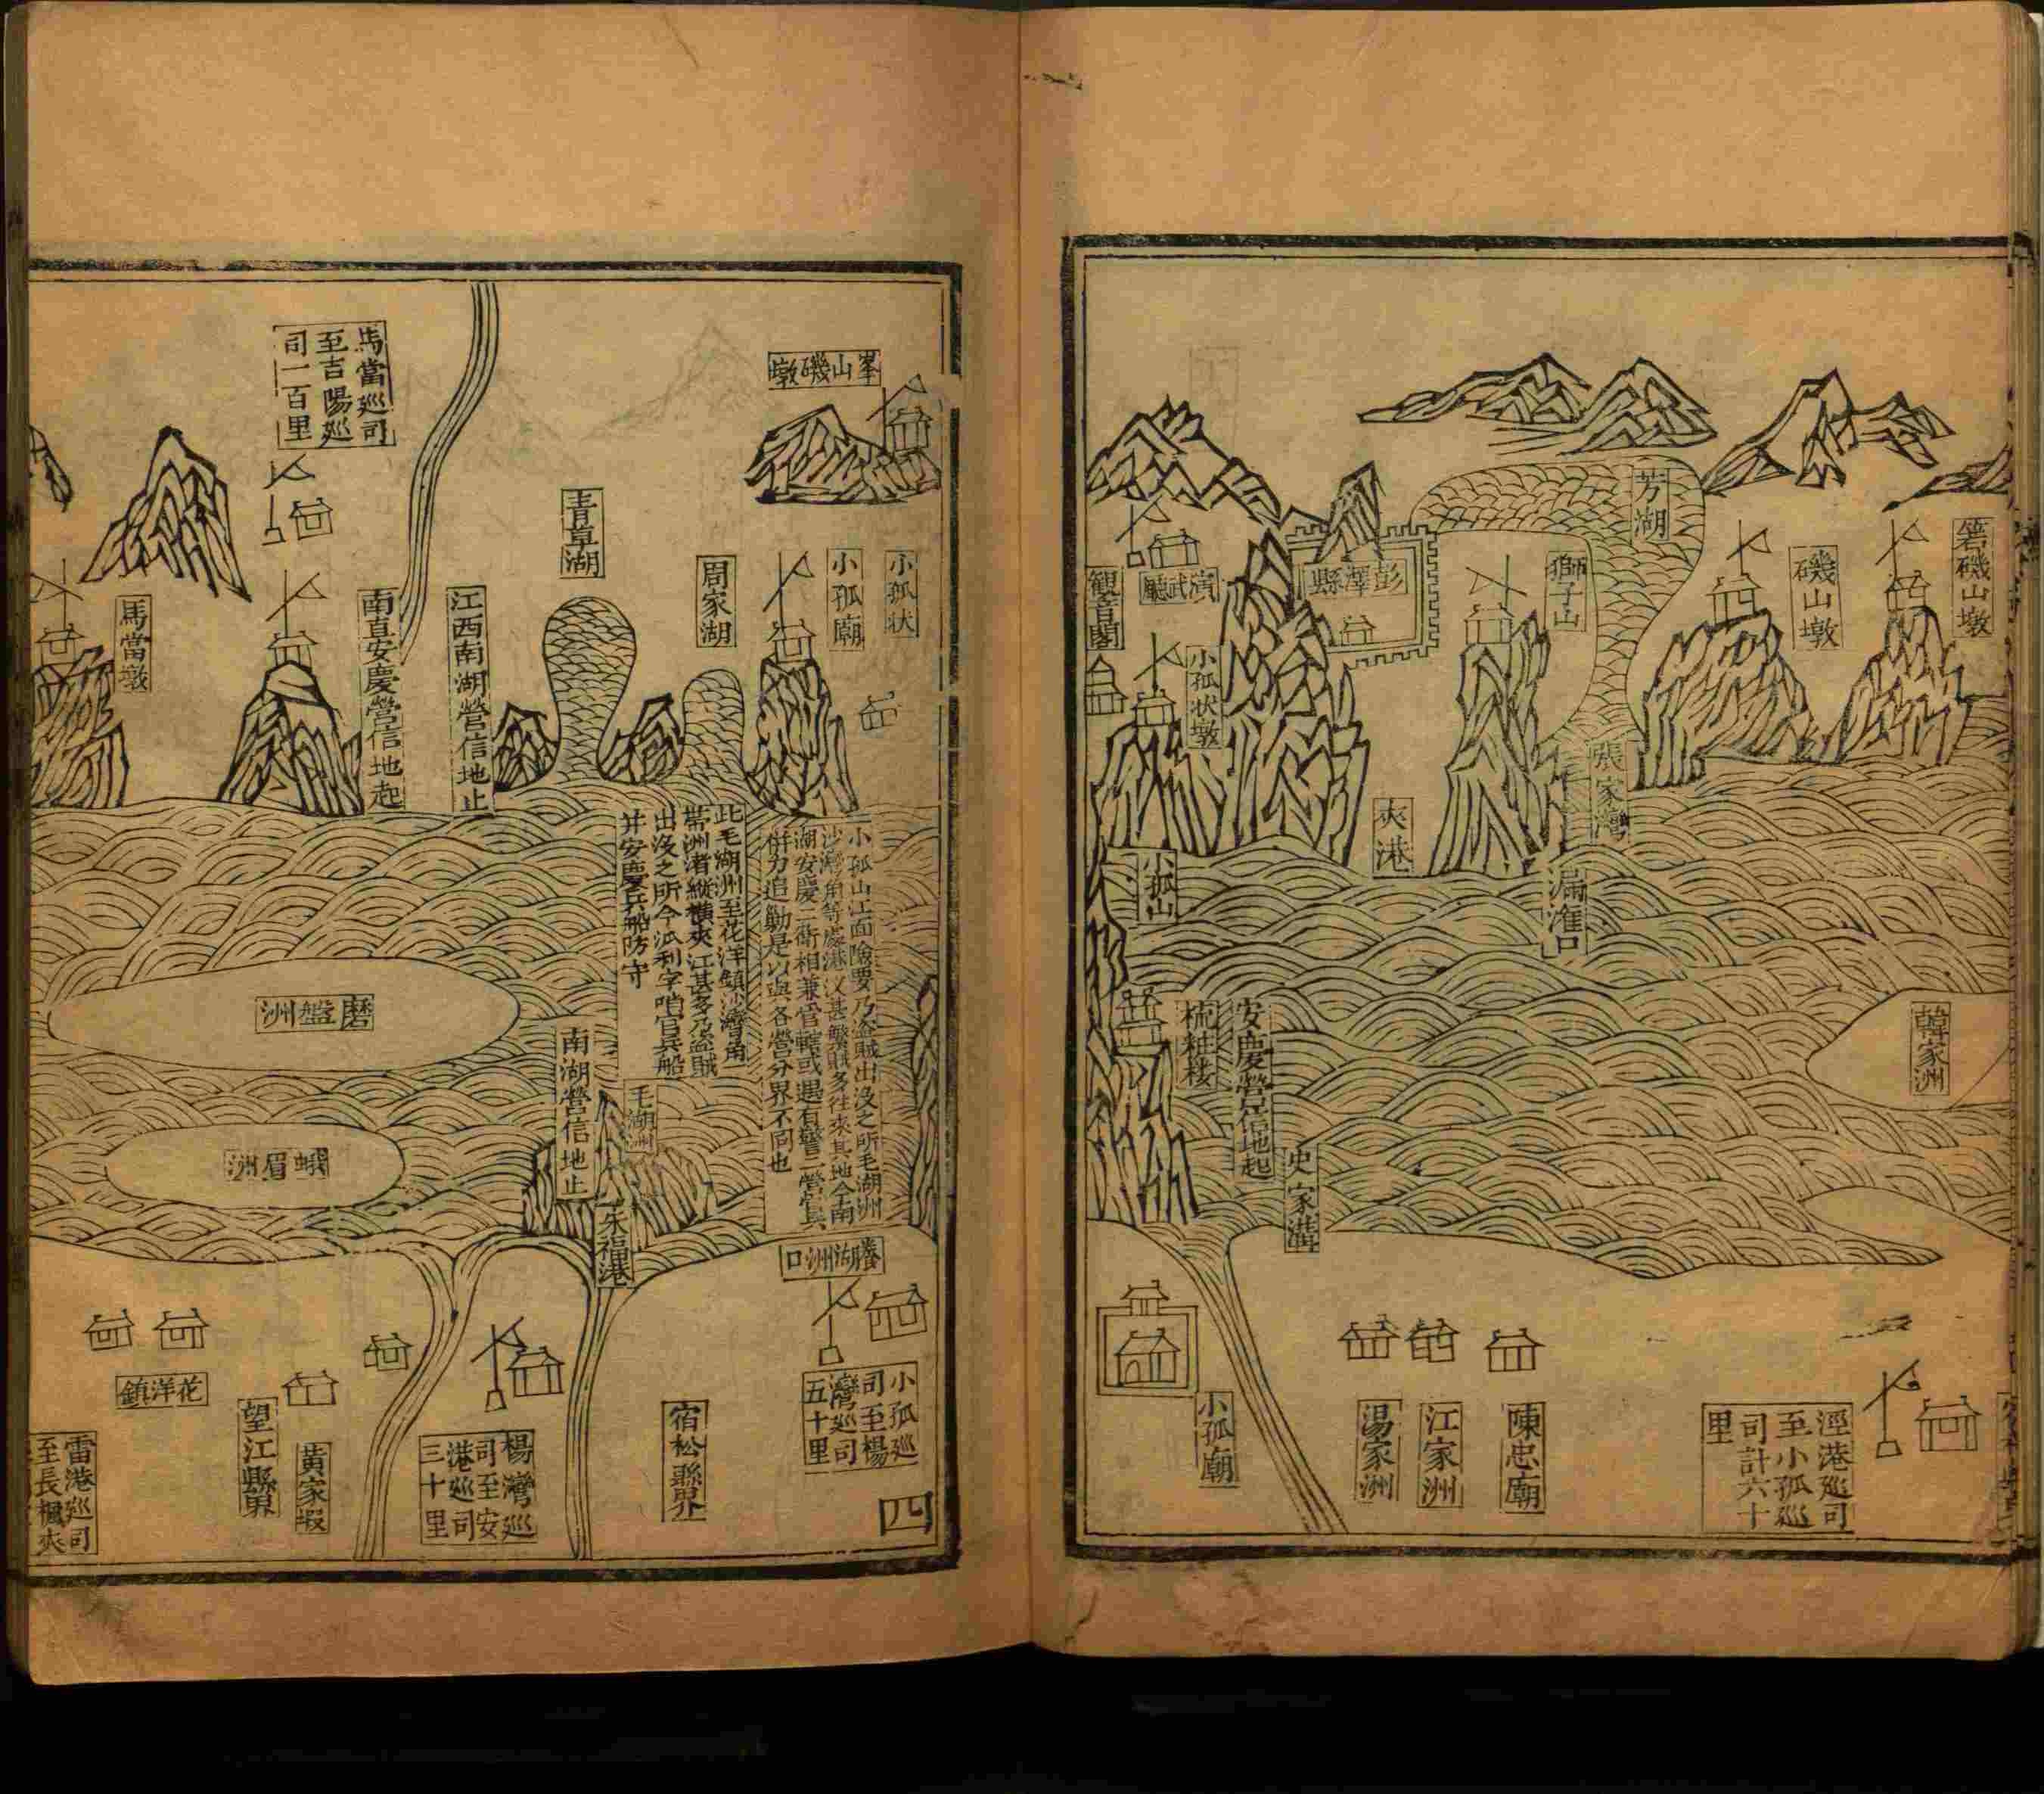 箬磯山墩
磯山墩
芳湖
獅子山
彭澤縣
演武廳
觀音閣
小孤狀墩
張家灣
夾港
小孤山
韓家洲
安慶營信地起
梳粧楼
史家溝
涇港廵司
至小孤廵
司計六十
里
陳忠廟
江家洲
湯家洲
小孤廟
峯山磯墩
小孤狀
小孤廟
周家湖
青草湖
江西南湖營信地止
南直安慶營信地起
馬當廵司
至吉陽廵
司一百里
馬當墩
小孤山江面險要乃盗賊出沒之所毛湖洲
沙灣角等處港汊甚繁賊多徃來其地今南
湖安慶二衛相兼管轄或遇有警二營官兵
併力追勦是以與各營分界不同也
此毛湖洲至花洋鎮沙灣角一
帶洲渚縱横夾江甚多乃盗賊
出沒之所今派利字哨官兵船
并安慶兵船防守
磨盤洲
蛾眉洲
南湖營信地止
毛湖洲
朱福港
湖洲口
小孤廵
司至楊
灣廵司
五十里
宿松縣界
楊灣廵
司至安
港廵司
三十里
黄家堰
望江縣界
花洋鎮
雷港廵司
至長楓夾
四